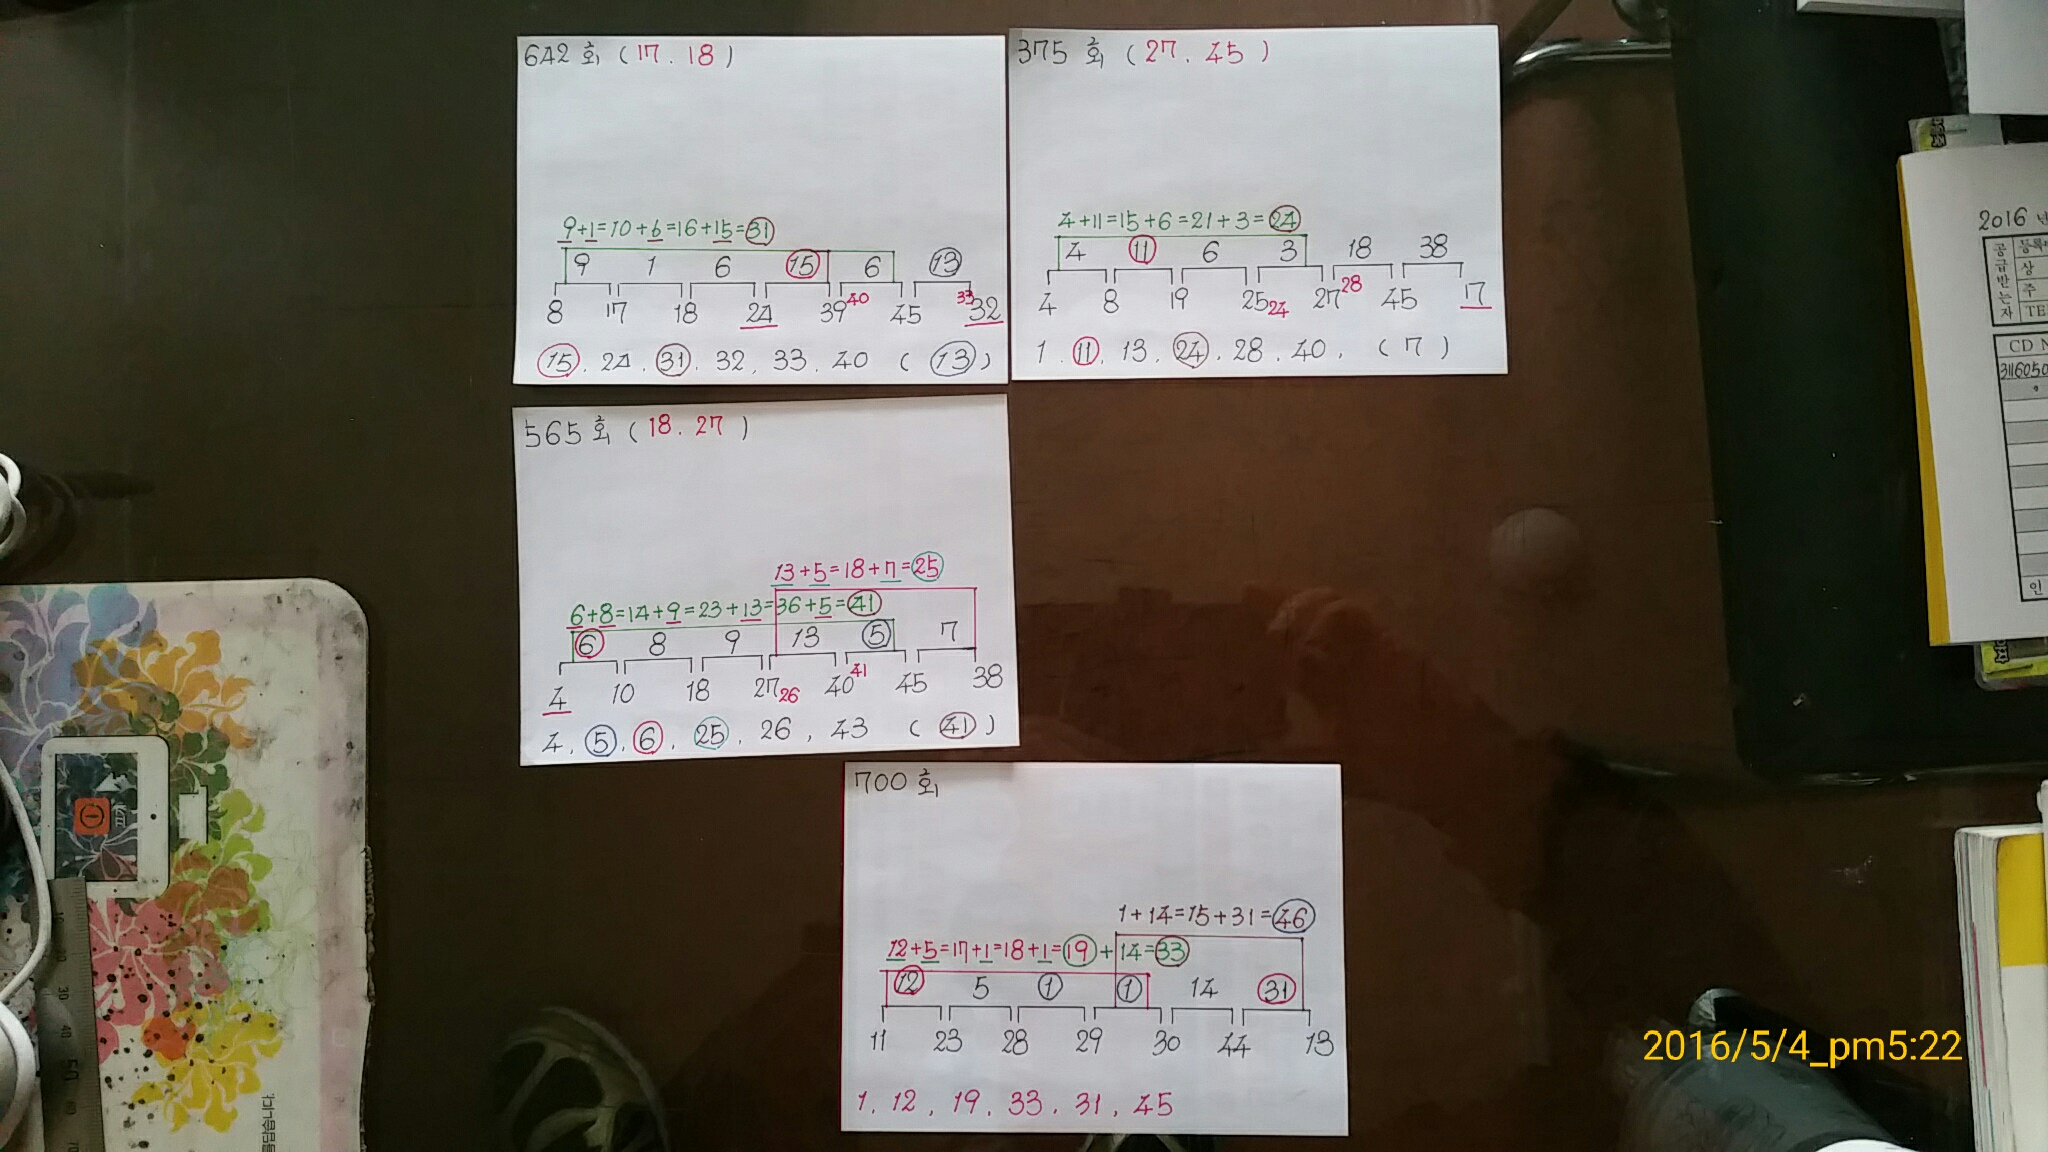 642 회 ( 17 . 18 )
9+1=10+6=16+15=31
9 1 6 15 6 13
8 17 18 24 39 40 45 33 32
15 . 24 . 31 . 32 . 33 . 40 ( 13 )
375 회 ( 27 . 45 )
4+11=15+6=21+3=24
4 11 6 3 18 38
4 8 19 25 24 27 28 45 17
1 . 11 . 13 . 24 . 28 . 40 . ( 7 )
565 회 ( 18 . 27 )
13+5=18+7=25
6+8=14+9=23+13=36+5=41
6 8 9 13 5 7
4 10 18 27 26 40 41 45 38
4 . 5 . 6 . 25 . 26 , 43 ( 41 )
700 회
1+14=15+31=46
12+5=17+1=18+1=19+14=33
12 5 1 1 14 31
11 23 28 29 30 44 13
1 . 12 . 19 . 33 . 31 , 45
2016
공급받는자
등록
상
주
TE
CD N
인
2016/5/4_pm5:22